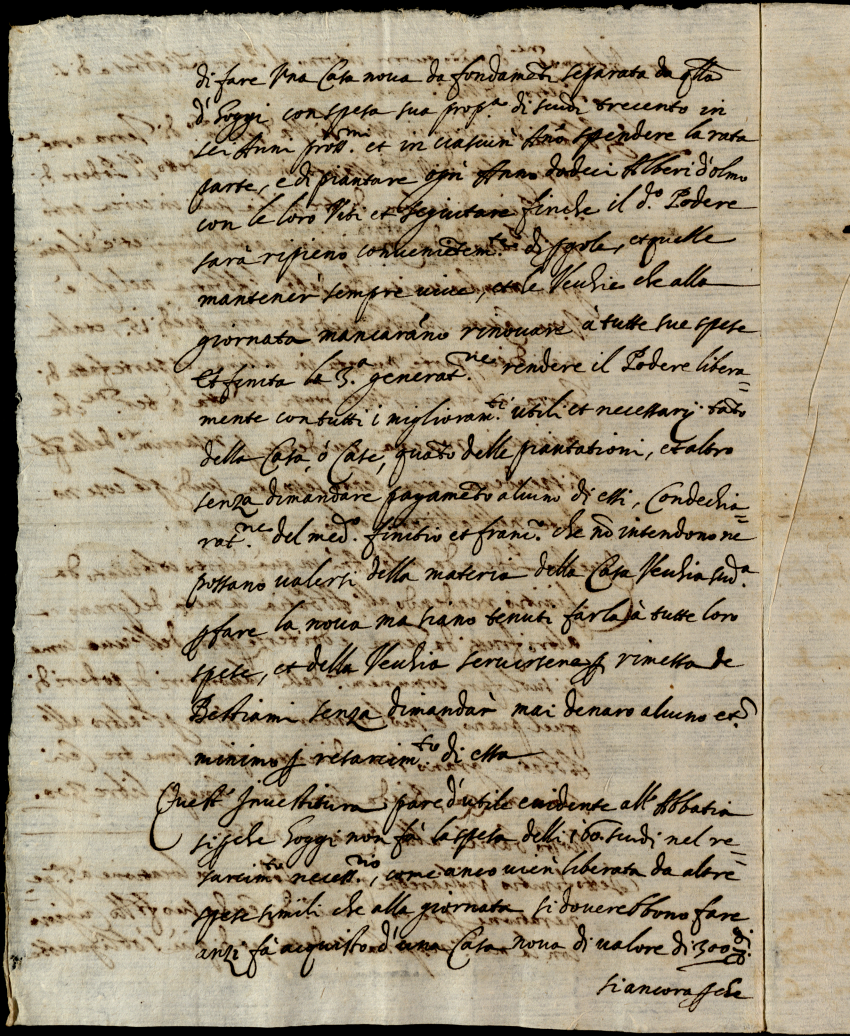 di fare Una Casa nova da fondamẽti separata da q̃lla
d'hoggi con spesa sua prop.a di scudi trecento in
sei Anni pross.mi et in ciascun' Año spendere la rata
parte, e di piantare ogni Anno dodeci Alberi d'olmo
con le loro Viti et seguitare finche il d.o Podere
sarà ripieno convenietem.te di ppole, et quelle
mantener' sempre vive, et le Vecchie che alla
giornata mancarãno rinovare à tutte sue spese
Et finita la 3.a generat.ne rendere il Podere libera=
mente con tutti i miglioram.ti utili et necessarij tãto
della Casa, ò Case, quãto delle piantationi, et altro
senza dimandare pagamẽto alcuno di essi, Con dechia=
rat.ne del med.o finitio et franc.o che nõ intendono ne
possano valersi della materia della Casa Vecchia sud.a
p fare la nova ma siano tenuti farla à tutte loro
spese, et della Vecchia servirsene p rimessa de
Bestiami senza dimandar' mai denaro alcuno et
minimo p retarcim.to di essa
Quest' Investitura pare d'utile evidente all' Abbatia
si p che hoggi non fà la spesa delli 160 scudi nel re=
sarcim.to necess.rio, come anco vien' liberata da altre
spese simili che alla giornata si doverebbono fare
anzi fà acquisto d'una Casa nova di valore di 300 di
si ancora p che